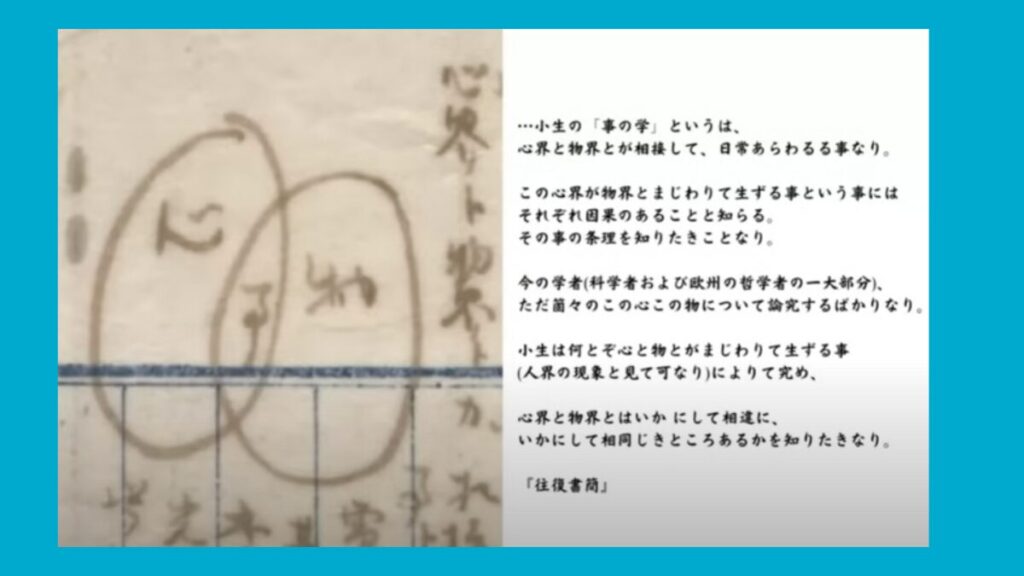 心
物
事
心界ト物界ト
…小生の「事の学」というは、
心界と物界とが相接して、日常あらわるる事なり。
この心界が物界とまじわりて生ずる事という事には
それぞれ因果のあることと知らる。
その事の条理を知りたきことなり。
今の学者(科学者および欧州の哲学者の一大部分)、
ただ箇々のこの心この物について論究するばかりなり。
小生は何とぞ心と物とがまじわりて生ずる事
(人界の現象と見て可なり)によりて究め、
心界と物界とはいか にして相違に、
いかにして相同じきところあるかを知りたきなり。
『往復書簡』